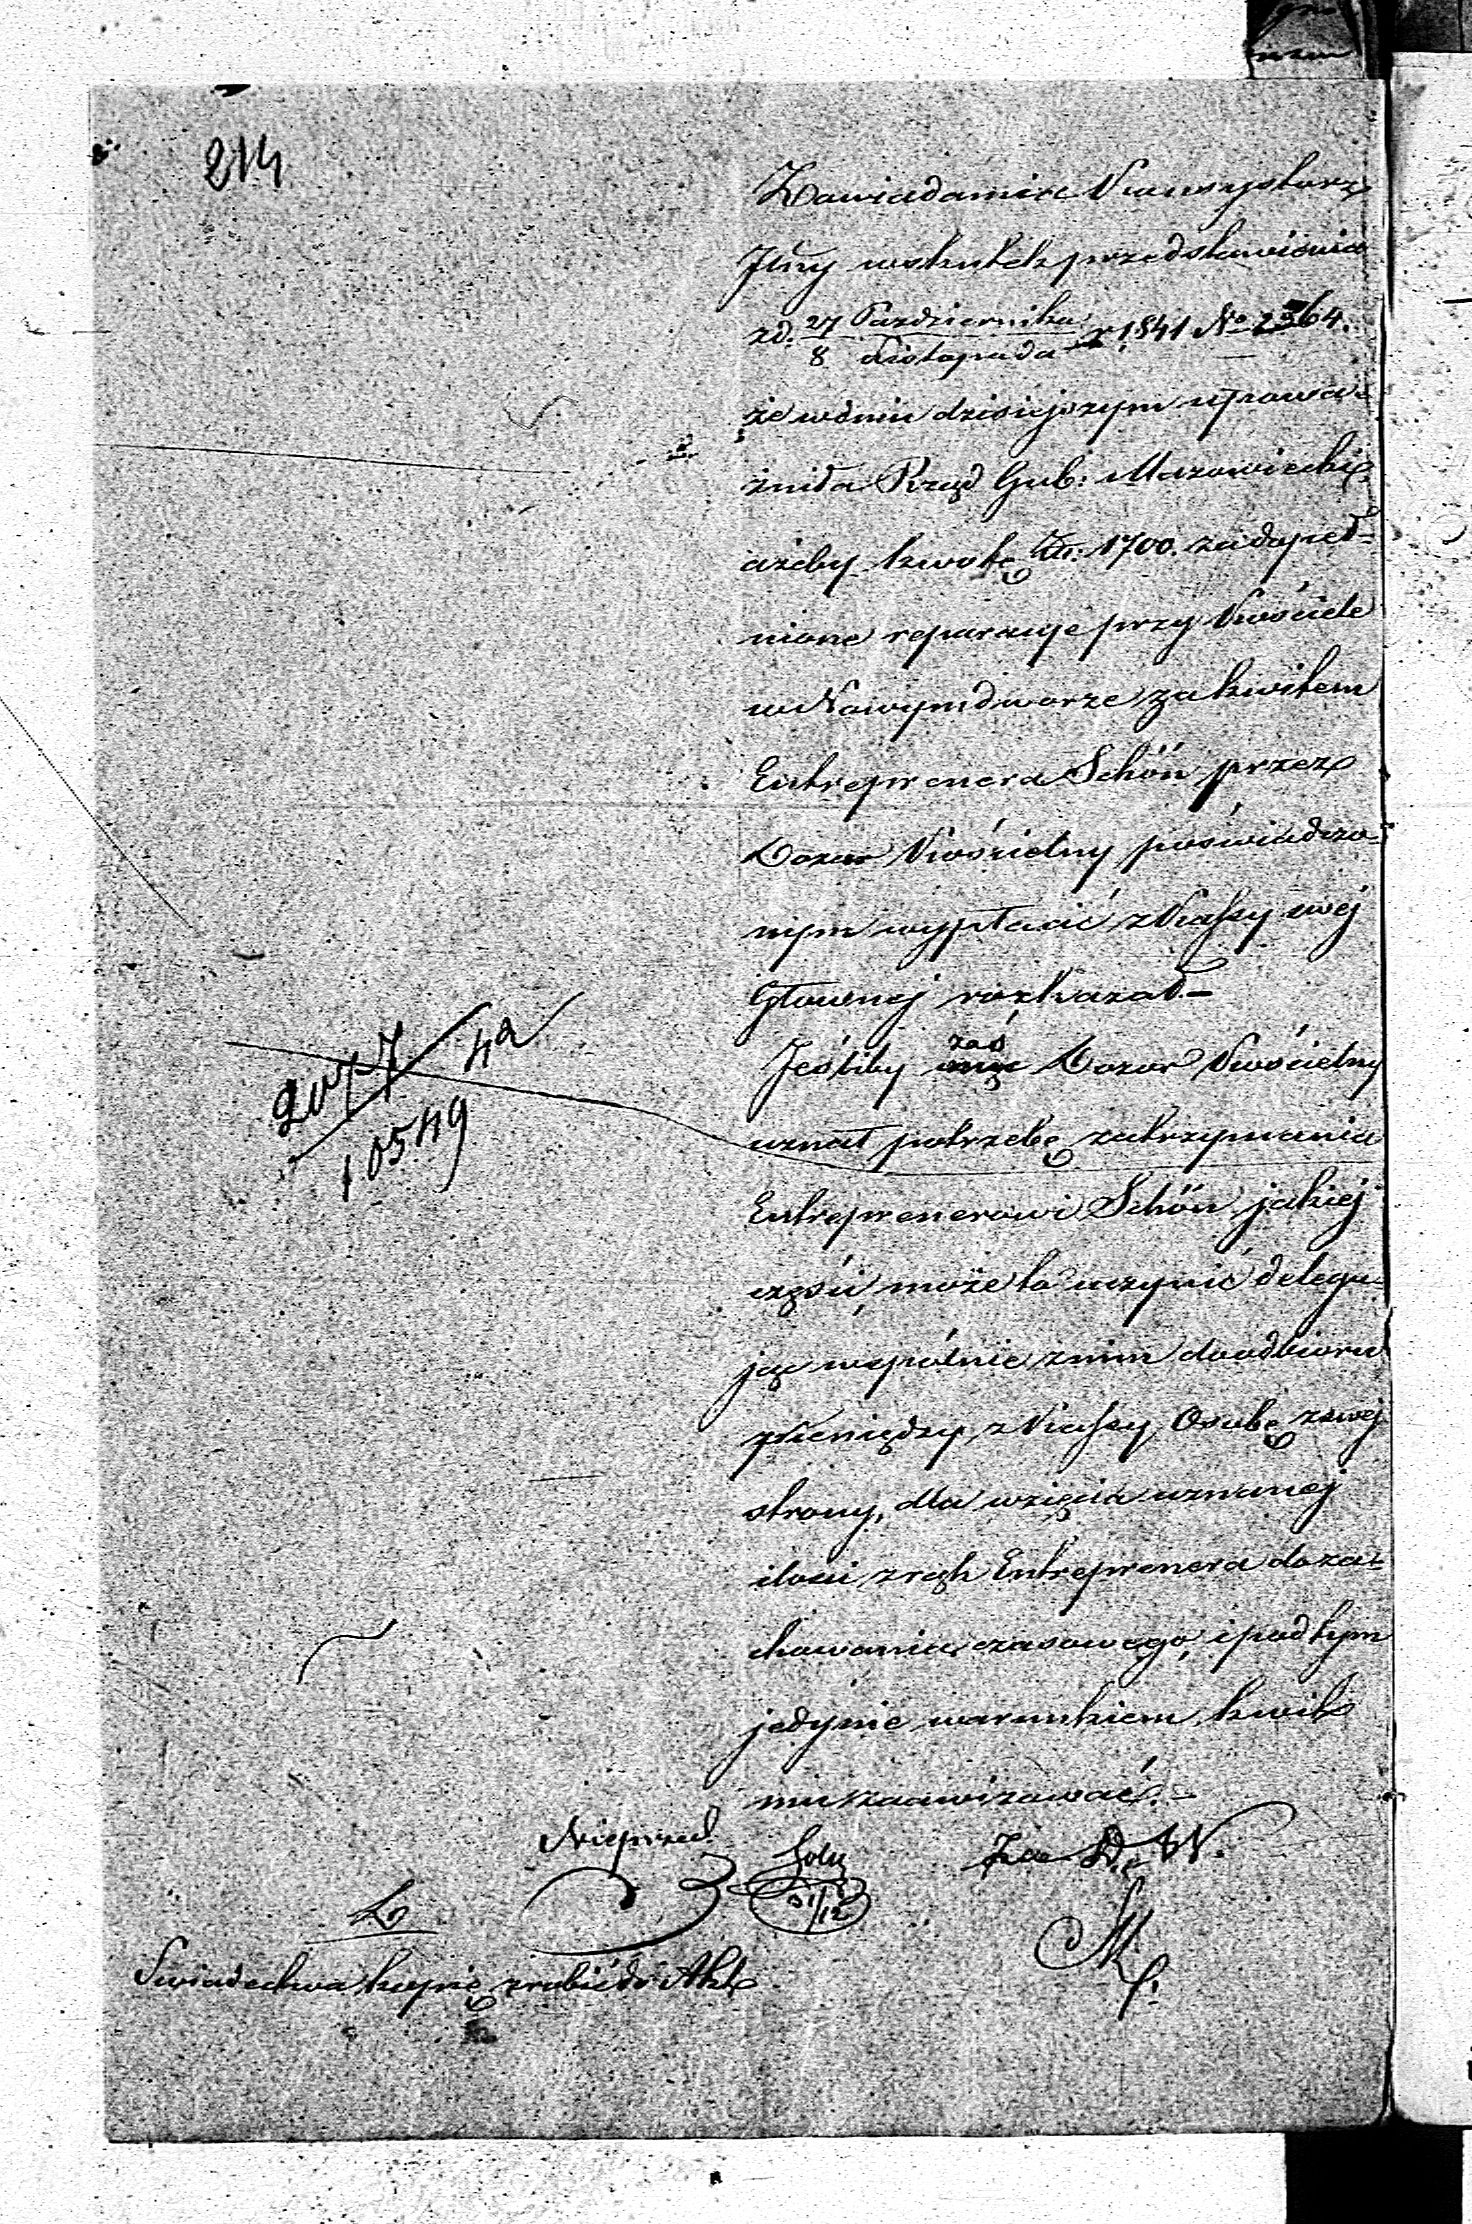 214
Zawiadamia Konsystorz
Jlny wskutek przedstawienia
zd. 27 Października / 8 Listopada r. 1841 No 2364.
że w dniu dzisiejszym upowa-
żniła Rząd Gub: Mazowiecki
ażeby kwotę Złt: 1700. za dopeł-
nione reparacye przy Kościele
w Nowymdworze za kwitem
Entreprenera Schön przez
Dozor Kościelny poświadczo-
nym wypłacić z Kassy swej
Głownej rozkazał.—
Jeśliby zaś Dozor Kościelny
uznał potrzebę zatrzymania
Entreprenerowi Schön jakiej
części, może to uczynić delegu-
jąc wspólnie z nim do odbioru
pieniędzy z Kassy Osobę z swej
strony, dla wzięcia uznanej
ilości z rąk Entreprenera do za-
chowania czasowego, i pod tym
jedynie warunkiem kwit
mu zaawizować.—
2077 / 10549 42
31/12
Swiadectwa kopię zrobić do Akt